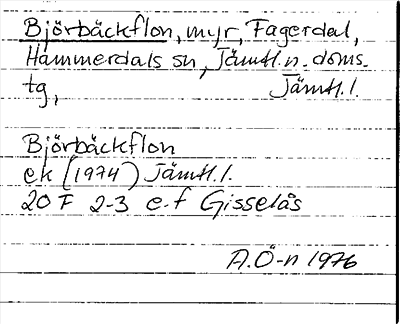 Björbäckflon, myr, Fagerdal,
Hammerdals sn, Jämtl.n. doms.
tg, Jämtl.l.
Björbäckflon
ek (1974) Jämtl.l.
20 F 2-3 e-f Gisselås
A.Ö-n 1976